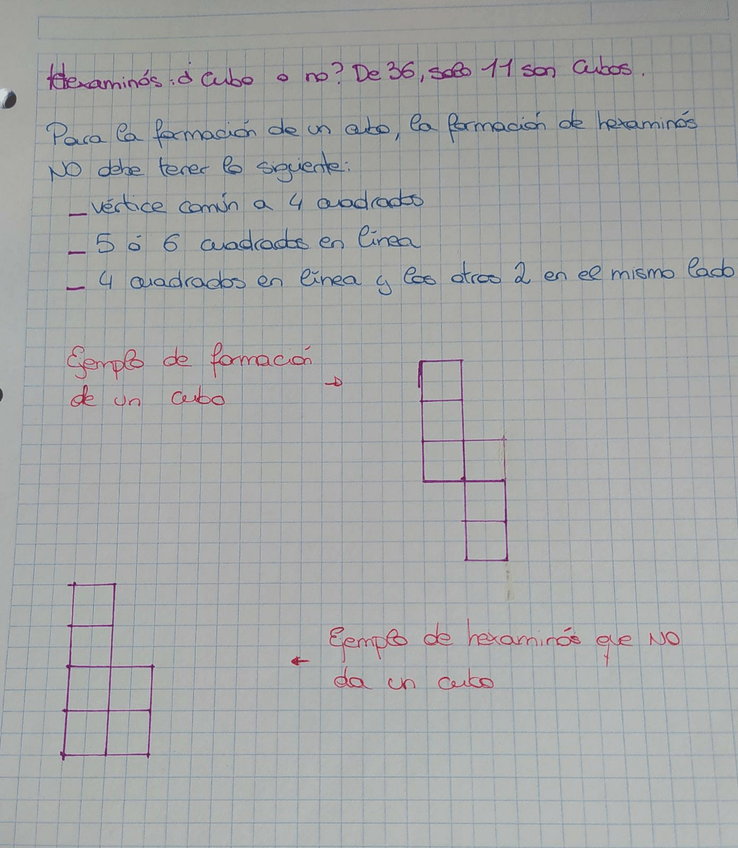 Hexaminós: ¿Cubo o no? De 36, solo 11 son cubos.
Para la formación de un cubo, la formación de hexaminós
NO debe tener lo siguiente:
- vértice común a 4 cuadrados
- 5 ó 6 cuadrados en línea
- 4 cuadrados en línea y los otros 2 en el mismo lado
Ejemplo de formación
de un cubo →
← Ejemplo de hexaminós que NO
da un cubo